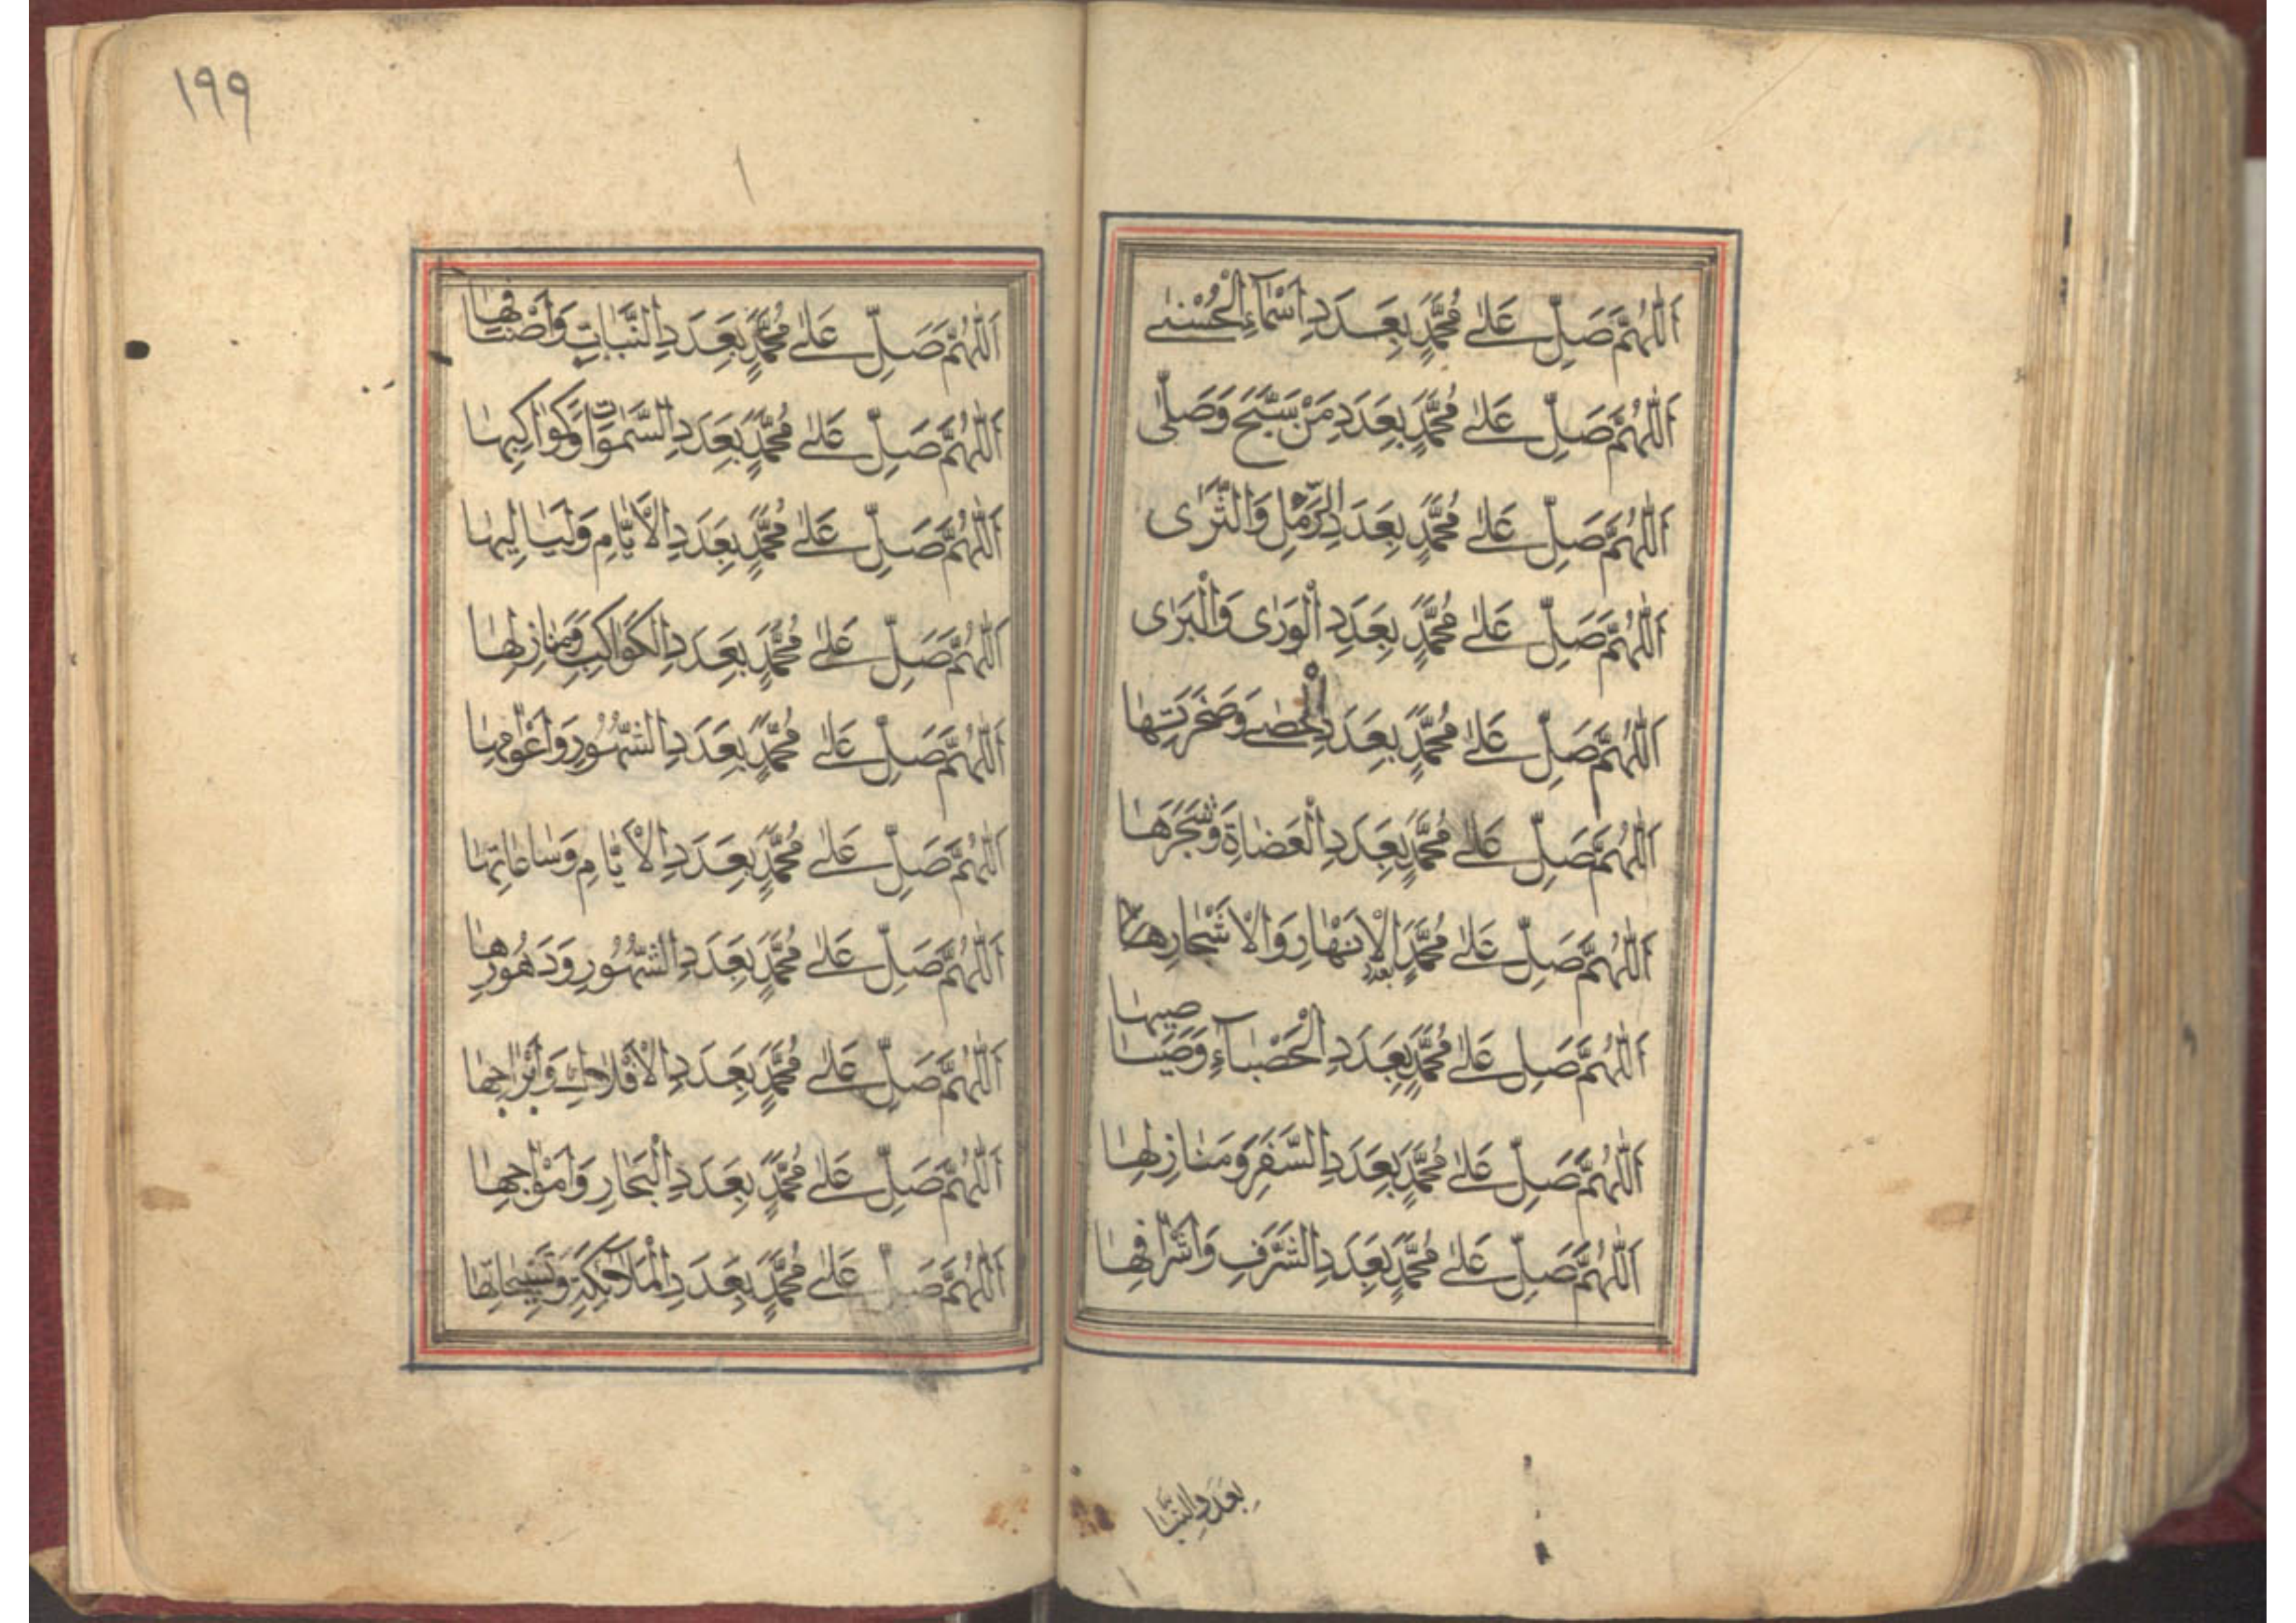 اَللّٰهُمَّ صَلِّ عَلٰى مُحَمَّدٍ بِعَدَدِ اَسْمَآءِ الْحُسْنٰى
اَللّٰهُمَّ صَلِّ عَلٰى مُحَمَّدٍ بِعَدَدِ مَنْ سَبَّحَ وَصَلّٰى
اَللّٰهُمَّ صَلِّ عَلٰى مُحَمَّدٍ بِعَدَدِ الرَّمْلِ وَالثَّرٰى
اَللّٰهُمَّ صَلِّ عَلٰى مُحَمَّدٍ بِعَدَدِ الْوَرٰى وَالْبَرٰى
اَللّٰهُمَّ صَلِّ عَلٰى مُحَمَّدٍ بِعَدَدِ الْحَصٰى وَصَخْرَتِهَا
اَللّٰهُمَّ صَلِّ عَلٰى مُحَمَّدٍ بِعَدَدِ الْعَضَاةِ وَشَجَرِهَا
اَللّٰهُمَّ صَلِّ عَلٰى مُحَمَّدٍ بعدد الْاَنْهَارِ وَالْاَشْجَارِهَا
اَللّٰهُمَّ صَلِّ عَلٰى مُحَمَّدٍ بِعَدَدِ الْحَصْبَآءِ وَصَيَاصِيهَا
اَللّٰهُمَّ صَلِّ عَلٰى مُحَمَّدٍ بِعَدَدِ السَّفَرِ وَمَنَازِلِهَا
اَللّٰهُمَّ صَلِّ عَلٰى مُحَمَّدٍ بِعَدَدِ الشَّرَفِ وَاَشْرَافِهَا
بِعَدَدِ النَّبَا
١٩٩
١
اَللّٰهُمَّ صَلِّ عَلٰى مُحَمَّدٍ بِعَدَدِ النَّبَاتِ وَاَصْنَافِهَا
اَللّٰهُمَّ صَلِّ عَلٰى مُحَمَّدٍ بِعَدَدِ السَّمٰوَاتِ وَكَوَاكِبِهَا
اَللّٰهُمَّ صَلِّ عَلٰى مُحَمَّدٍ بِعَدَدِ الْاَيَّامِ وَلَيَالِيهَا
اَللّٰهُمَّ صَلِّ عَلٰى مُحَمَّدٍ بِعَدَدِ الْكَوَاكِبِ وَمَنَازِلِهَا
اَللّٰهُمَّ صَلِّ عَلٰى مُحَمَّدٍ بِعَدَدِ الشُّهُورِ وَاَعْوَامِهَا
اَللّٰهُمَّ صَلِّ عَلٰى مُحَمَّدٍ بِعَدَدِ الْاَيَّامِ وَسَاعَاتِهَا
اَللّٰهُمَّ صَلِّ عَلٰى مُحَمَّدٍ بِعَدَدِ الشُّهُورِ وَدَهُورِهَا
اَللّٰهُمَّ صَلِّ عَلٰى مُحَمَّدٍ بِعَدَدِ الْاَفْلَاكِ وَاَبْرَاجِهَا
اَللّٰهُمَّ صَلِّ عَلٰى مُحَمَّدٍ بِعَدَدِ الْبِحَارِ وَاَمْوَاجِهَا
اَللّٰهُمَّ صَلِّ عَلٰى مُحَمَّدٍ بِعَدَدِ الْمَلَائِكَةِ وَتَسْبِيحَاتِهَا